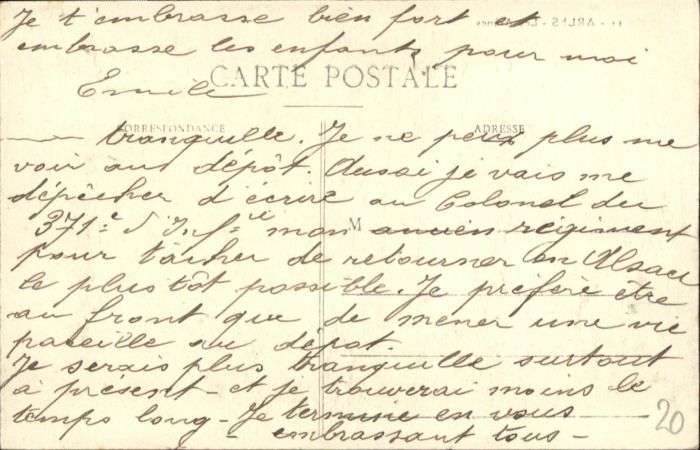 Je t'embrasse bien fort et
embrasse les enfants pour moi
CARTE POSTALE
Emile
CORRESPONDANCE
ADRESSE
tranquille. Je ne peux plus me
voir au dépôt. Aussi je vais me
dépêcher d'écrire au Colonel du
371e d'Infie mon ancien régiment
M
pour tâcher de retourner en Alsace
le plus tôt possible. Je préfère être
au front que de mener une vie
pareille au dépôt.
Je serais plus tranquille surtout
à présent - et je trouverai moins le
temps long - Je termine en vous
embrassant tous -
20